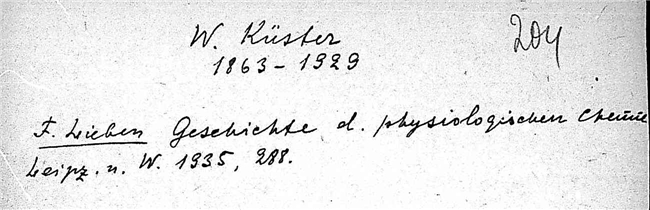 W. Küster
204
1863 – 1929
F. Lieben Geschichte d. physiologischen Chemie
Leipz. u. W. 1935, 288.